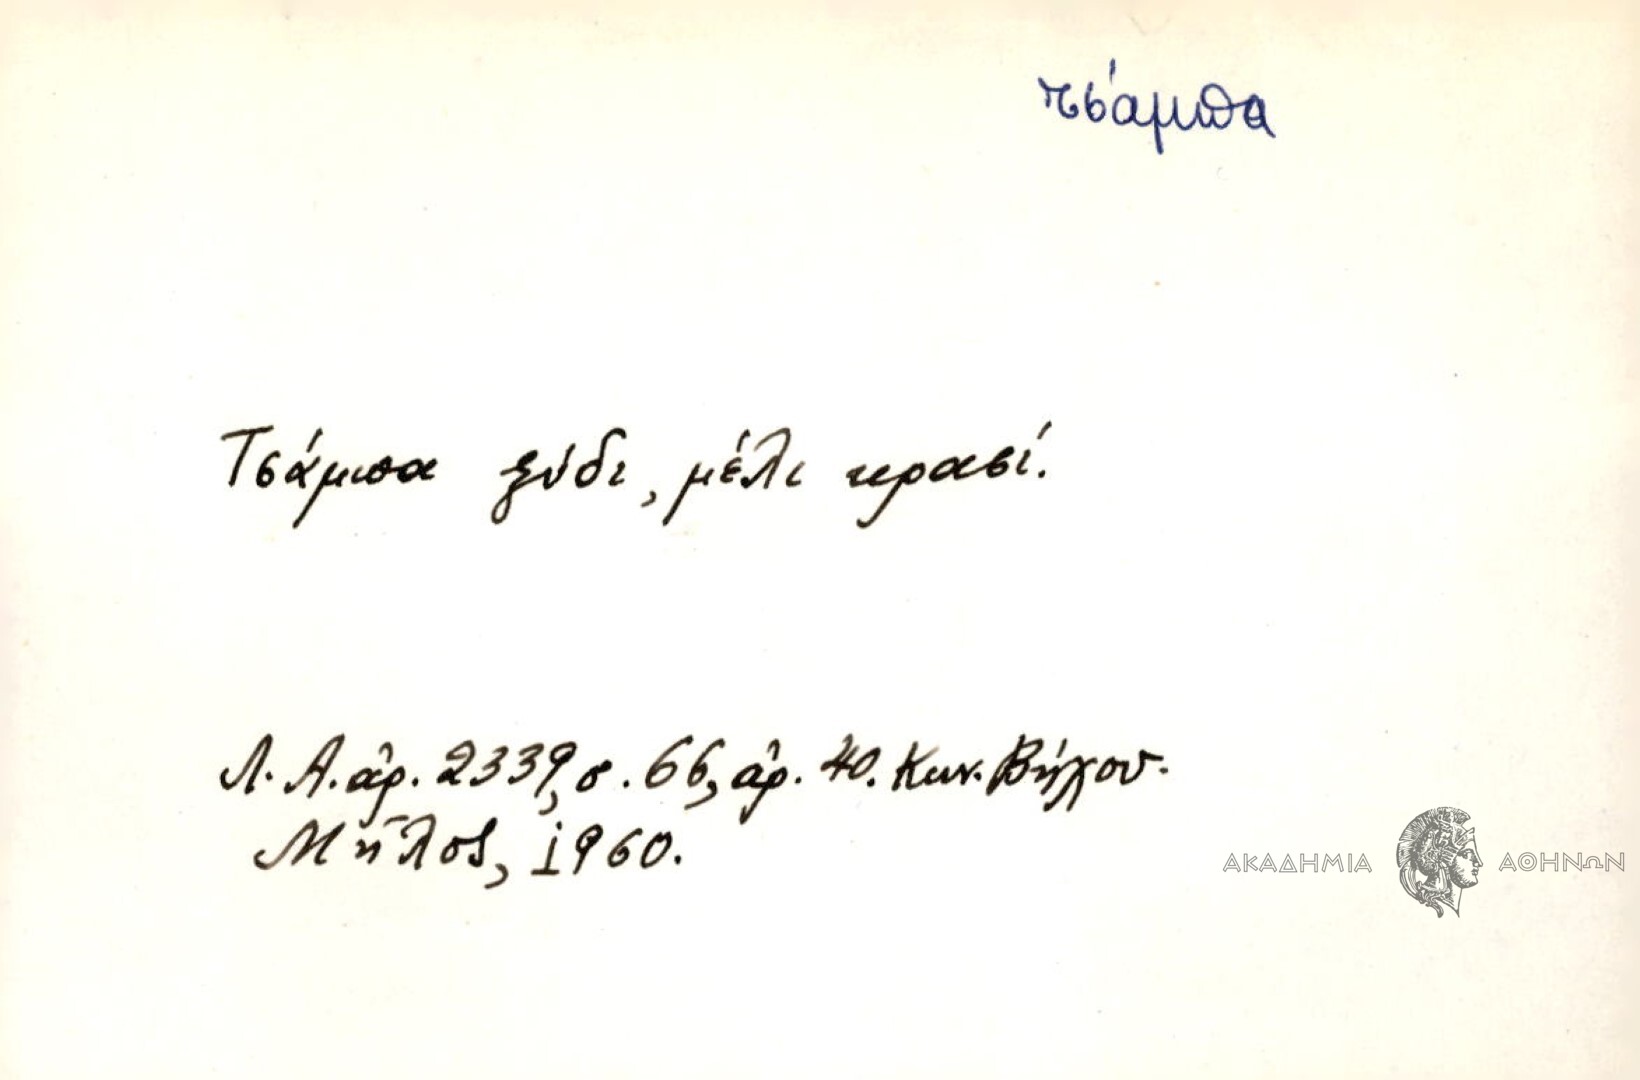 τσάμπα
Τσάμπα ξύδι, μέλι κρασί.
Λ. Α. ἀρ. 2339, σ. 66, ἀρ. 40. Κων. Βήχου.
Μῆλος, 1960.
ΑΚΑΔΗΜΙΑ ΑΘΗΝΩΝ